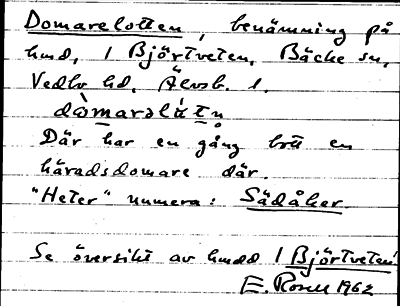 Domarelotten, benämning på
hmd, 1 Björtveten, Bäcke sn,
Vedbo hd, Älvsb. l.
dò̀marəlátn
Där har en gång bott en
häradsdomare där.
"Heter" numera: Sädåker.
Se översikt av hmdd 1 Björtveten!
E. Rosell 1962